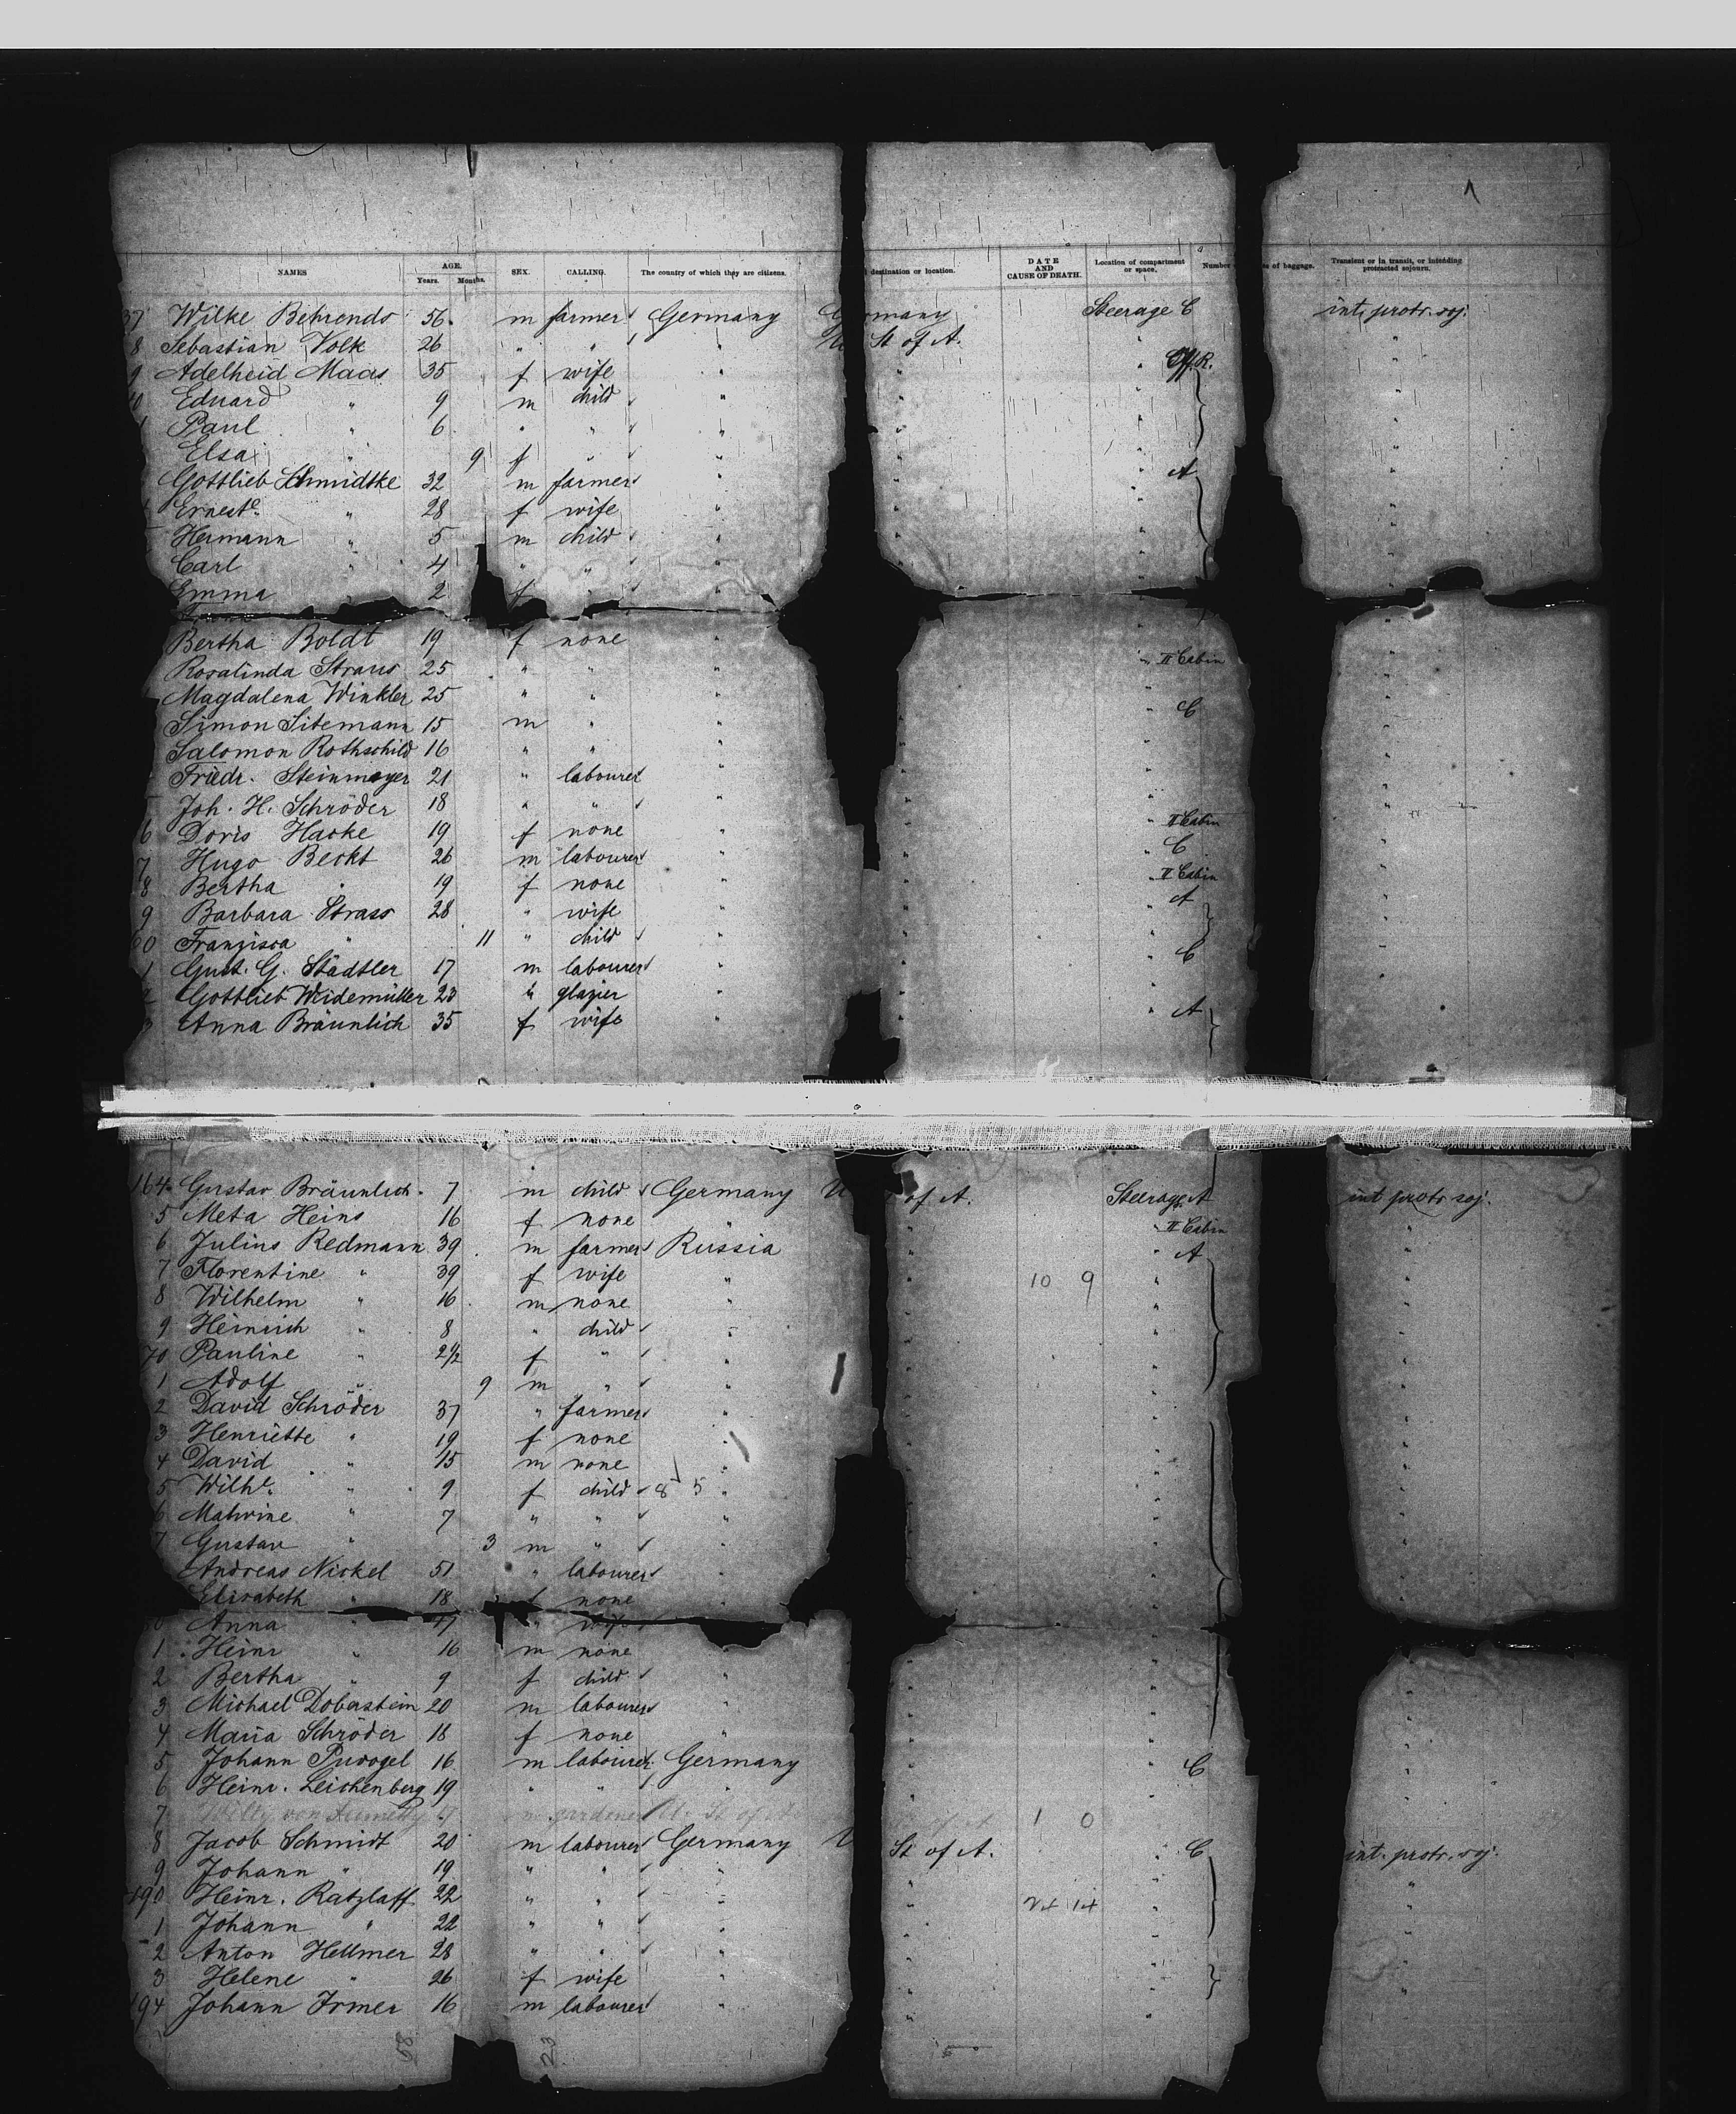 NAMES AGE. Years. Months. SEX. CALLING. The country of which they are citizens. destination or location. DATE AND CAUSE OF DEATH. Location of compartment or space. Number of baggage. Transient or in transit, or intending protracted sojourn.
37 Wilke Behrends 56 m farmer Germany Germany Steerage C int. protr. soj.
8 Sebastian Volk 26 " " " U St of A. " "
9 Adelheid Maas 35 f wife " " " Off. R. "
40 Eduard " 9 m child " " " "
1 Paul " 6 " " " " " "
Elsa " 9 f " " " " "
Gottlieb Schmidtke 32 m farmer " " " A "
Erneste " 28 f wife " " " "
Hermann " 5 m child " " " "
Carl " 4 " " " " " "
Emma " 2 f " " " " "
Bertha Boldt 19 f none " " "
Rosalinda Straus 25 " " " " " II Cabin "
Magdalena Winkler 25 " " " " " "
Simon Sitemann 15 m " " " " C "
Salomon Rothschild 16 " " " " " "
Friedr. Steinmeyer 21 " labourer " " " "
Joh. H. Schröder 18 " " " " " "
6 Doris Hacke 19 f none " " " II Cabin "
7 Hugo Beckt 26 m labourer " " " C "
8 Bertha " 19 f none " " " II Cabin "
9 Barbara Strass 28 " wife " " " A "
60 Franzisca " 11 " child " " " "
1 Gust. G. Städtler 17 m labourer " " " C "
2 Gottlieb Weidemüller 23 " glazier " " " "
3 Anna Bräunlich 35 f wife " " " A "
164 Gustav Bräunlich 7 m child Germany U of A. Steerage A int protr soj.
5 Meta Heins 16 f none " " " II Cabin "
6 Julius Redmann 39 m farmer Russia " " A "
7 Florentine " 39 f wife " " 10 9 " "
8 Wilhelm " 16 m none " " " "
9 Heinrich " 8 " child " " " "
70 Pauline " 2 1/2 f " " " " "
1 Adolf " 9 m " " " " "
2 David Schröder 37 " farmer " " " "
3 Henriette " 19 f none " " " "
4 David " 15 m none " " " "
5 Wilhe. " 9 f child 8 5 " " " "
6 Mahrine " 7 " " " " " "
7 Gustav " 3 m " " " " "
Andreas Nickel 51 " labourer " " " "
Elisabeth " 18 f none " " " "
0 Anna " 47 " wife " "
1 Heinr " 16 m none " " " "
2 Bertha " 9 f child " " " "
3 Michael Doberstein 20 m labourer " " " "
4 Maria Schröder 18 f none " " " "
5 Johann Puvogel 16 m labourer Germany " " C "
6 Heinr. Leichenberg 19 " " " " " "
7 Willy von m gardener U. St of A. 1 0
8 Jacob Schmidt 20 m labourer Germany U St of A. " C int. protr. soj.
9 Johann " 19 " " " " " "
190 Heinr. Ratzlaff 22 " " " " 24 14 " "
1 Johann " 22 " " " " " "
2 Anton Hellmer 28 " " " " " "
3 Helene " 26 f wife " " " "
194 Johann Irmer 16 m labourer " " " "
68 23